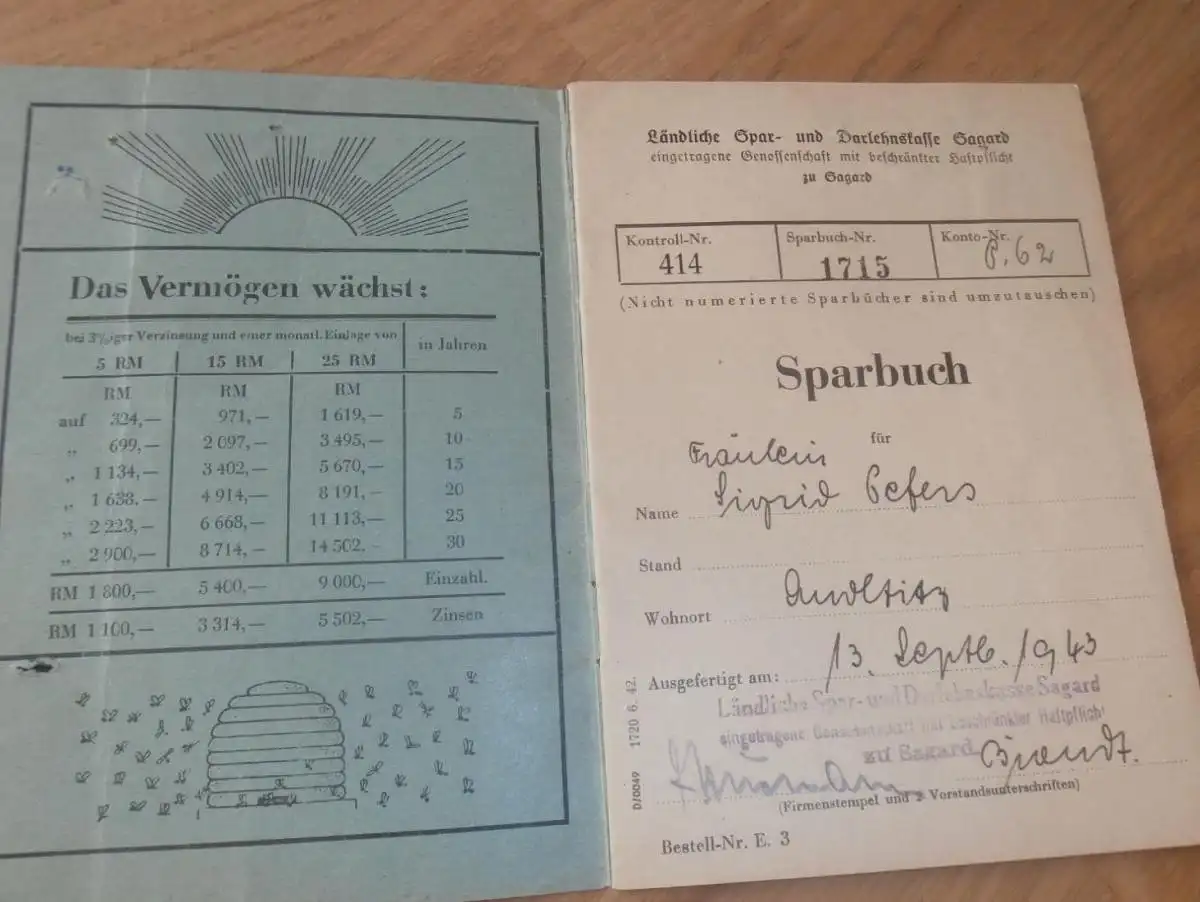 Das Vermögen wächst:
bei 3%iger Verzinsung und einer monatl. Einlage von
in Jahren
5 RM 15 RM 25 RM
RM RM RM
auf 324,— 971,— 1 619,— 5
„ 699,— 2 097,— 3 495,— 10
„ 1 134,— 3 402,— 5 670,— 15
„ 1 638,— 4 914,— 8 191,— 20
„ 2 223,— 6 668,— 11 113,— 25
„ 2 900,— 8 714,— 14 502,— 30
RM 1 800,— 5 400,— 9 000,— Einzahl.
RM 1 100,— 3 314,— 5 502,— Zinsen
Ländliche Spar- und Darlehnskasse Sagard
eingetragene Genossenschaft mit beschränkter Haftpflicht
zu Sagard
Kontroll-Nr. Sparbuch-Nr. Konto-Nr.
414 1715 P. 62
(Nicht numerierte Sparbücher sind umzutauschen)
Sparbuch
für
Fräulein
Name Sigrid Pefers
Stand
Wohnort
Ausgefertigt am: 13. Septb. 1943
Ländliche Spar- und Darlehnskasse Sagard
eingetragene Genossenschaft mit beschränkter Haftpflicht
zu Sagard
Brandt.
(Firmenstempel und 2 Vorstandsunterschriften)
D/0049 1720 6. 42.
Bestell-Nr. E. 3